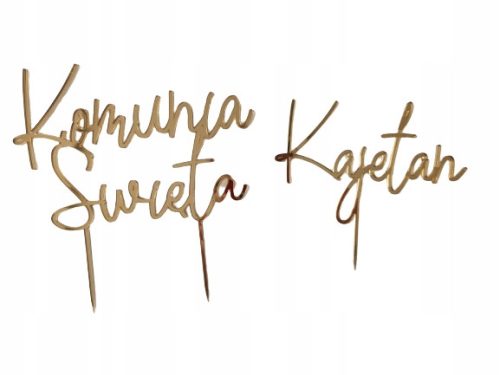 Komunia
Swieta
Kajetan